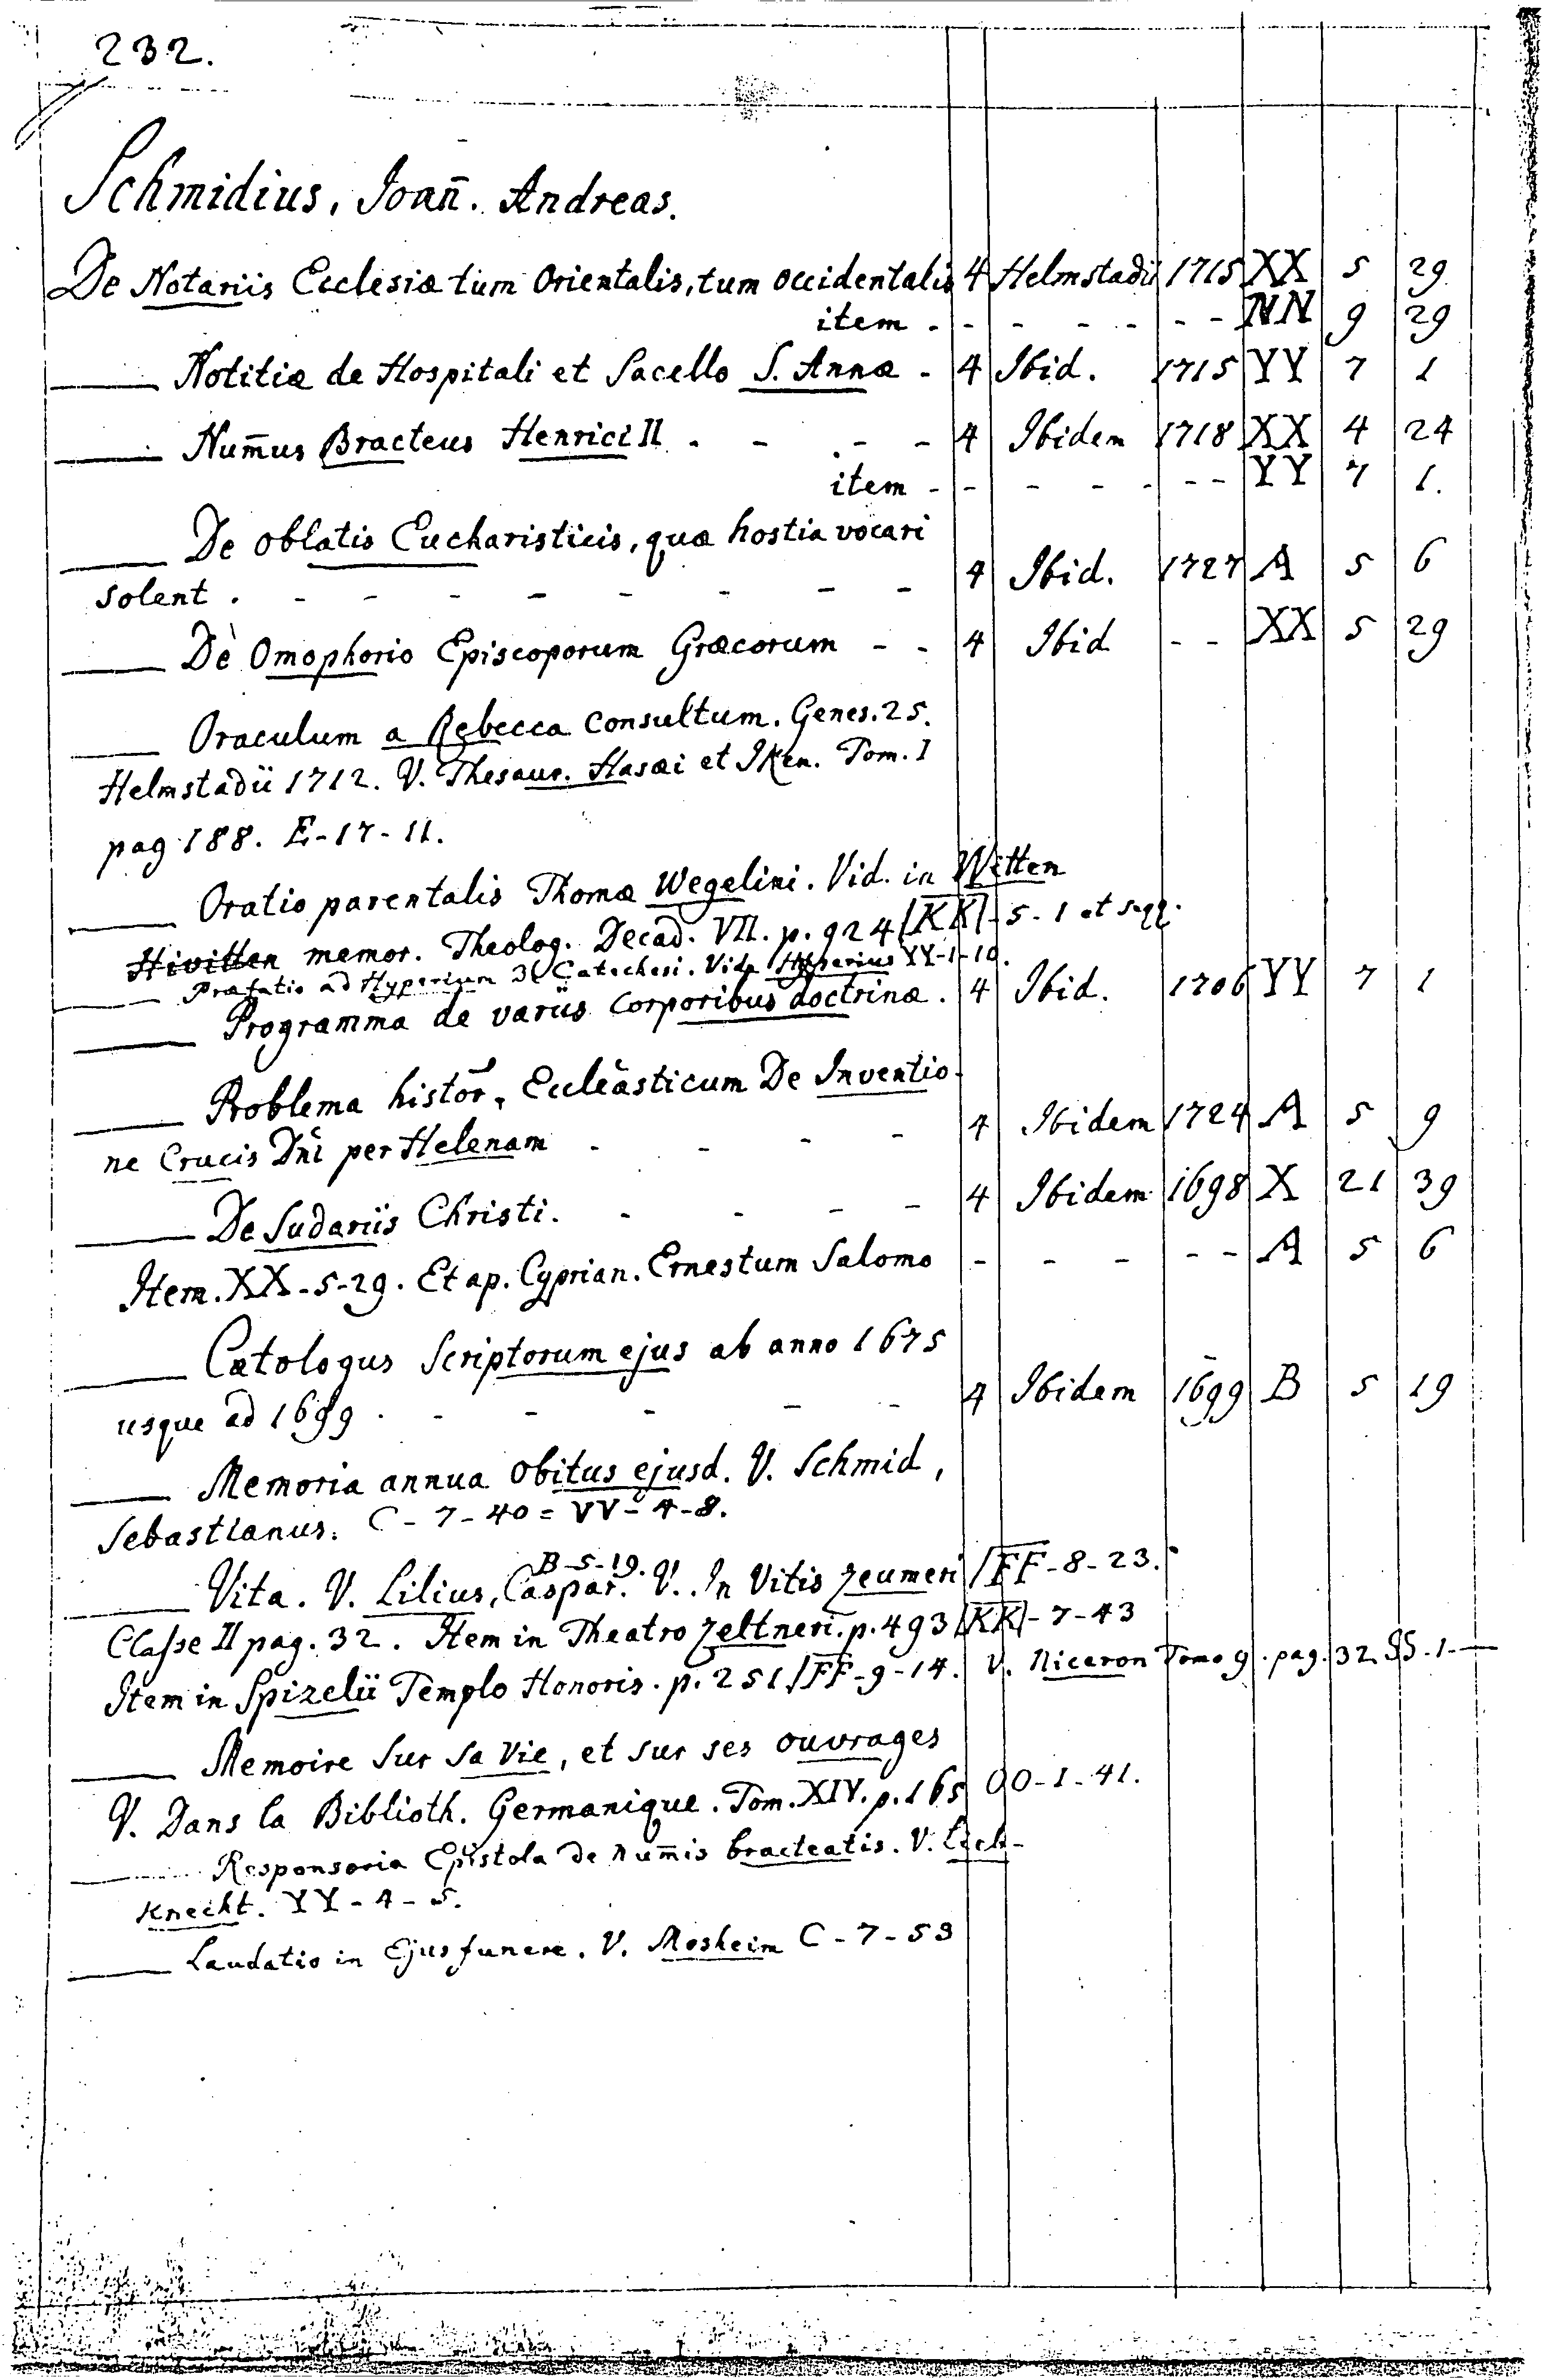 232.
Schmidius, Joan̄. Andreas.
De Notariis Ecclesiæ tum Orientalis, tum occidentalis 4 Helmstadii 1715 XX 5 29
item - - - - - - - NN 9 29
—— Notitiæ de Hospitali et Sacello S. Annæ - 4 Ibid. 1715 YY 7 1
—— Num̄us Bracteus Henrici II - - - - 4 Ibidem 1718 XX 4 24
item - - - - - - - YY 7 1.
—— De oblatis Eucharisticis, quæ hostia vocari
solent . - - - - - - - 4 Ibid. 1727 A 5 6
—— De Omophorio Episcoporum Græcorum - - 4 Ibid - - XX 5 29
—— Oraculum a Rebecca consultum. Genes. 25.
Helmstadii 1712. V. Thesaur. Hasæi et Iken. Tom. I
pag 188. E-17-11.
—— Oratio parentalis Thomæ Wegelini. Vid. in Witten
Hivitten memor. Theolog. Decad. VII. p. 924 /KK/-5-1 et seqq.
—— Præfatio ad Hyperium Catechesi. Vide Hyperius YY-1-10.
—— Programma de variis corporibus doctrinæ. 4 Ibid. 1706 YY 7 1
—— Problema histor̄. Eccleasticum De Inventio-
ne Crucis Dn̄i per Helenam - - - - 4 Ibidem 1724 A 5 9
—— De Sudariis Christi. - - - - 4 Ibidem 1698 X 21 39
Item. XX-5-29. Et ap. Cyprian. Ernestum Salomo - - - - - A 5 6
—— Catologus Scriptorum ejus ab anno 1675
usque ad 1699 . - - - - - 4 Ibidem 1699 B 5 19
—— Memoria annua obitus ejusd. V. Schmid,
Sebastianus. C-7-40 = VV-4-8.
B-5-19.
—— Vita. V. Lilius, Caspar. V. In Vitis Zeumeri /FF-8-23.
Classe II pag. 32. Item in Theatro Zeltneri. p. 493 /KK/-7-43
Item in Spizelii Templo Honoris. p. 251 /FF-9-14. V. Niceron Tomo 9. pag. 32 SS-1-—
—— Memoire sur sa vie, et sur ses ouvrages
V. Dans la Biblioth. Germanique. Tom. XIV. p. 165 OO-1-41.
—— Responsoria Epistola de num̄is bracteatis. V. Lieb-
knecht. YY-4-5.
—— Laudatio in Ejus funere. V. Mosheim C-7-53